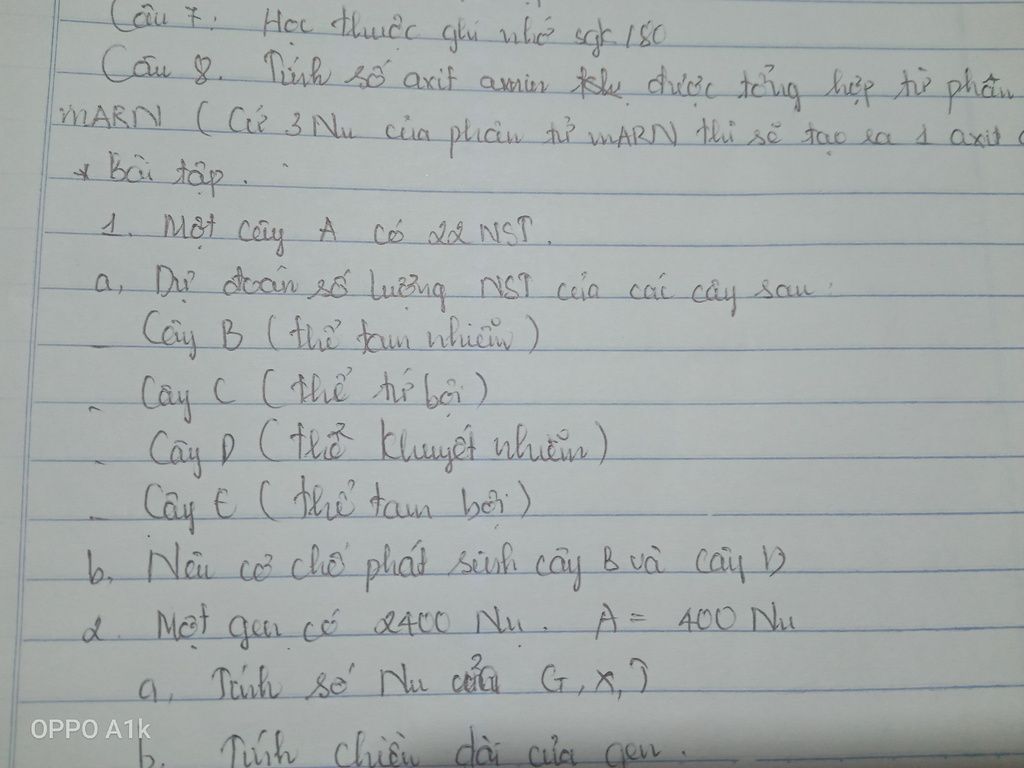 Câu 7. Học thuộc ghi nhớ sgk 180
Câu 8. Tính số axit amin được tổng hợp từ phân
mARN ( Cứ 3 Nu của phân tử mARN thì sẽ tạo ra 1 axit
* Bài tập.
1. Một cây A có 22 NST.
a, Dự đoán số lượng NST của các cây sau:
- Cây B ( thể tam nhiễm )
- Cây C ( thể tứ bội )
- Cây D ( thể khuyết nhiễm )
- Cây E ( thể tam bội )
b, Nêu cơ chế phát sinh cây B và cây D
2. Một gen có 2400 Nu. A = 400 Nu
a, Tính số Nu của G, X, T
b. Tính chiều dài của gen.
OPPO A1k